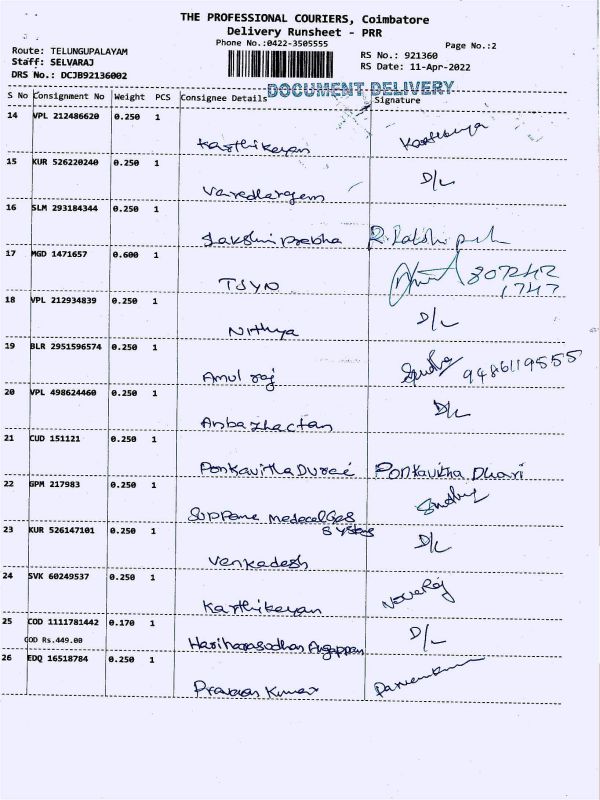 THE PROFESSIONAL COURIERS, Coimbatore
Delivery Runsheet - PRR
Phone No.:0422-3505555
Page No.:2
Route: TELUNGUPALAYAM
Staff: SELVARAJ
DRS No.: DCJB92136002
RS No.: 921360
RS Date: 11-Apr-2022
DOCUMENT DELIVERY
S No Consignment No Weight PCS Consignee Details Signature
14 VPL 212486620 0.250 1
Karthikeyan
15 KUR 526220240 0.250 1 D/L
Varadharajem
16 SLM 293184344 0.250 1
Lakshmi Prebha
17 MGD 1471657 0.600 1 807242
TSYN 1747
18 VPL 212934839 0.250 1 D/L
Nithya
19 BLR 2951596574 0.250 1
Amul raj 9486119555
20 VPL 498624460 0.250 1 D/L
Anbazhactan
21 CUD 151121 0.250 1
Ponkavitha Duraé Ponkavitha Dhari
22 GPM 217983 0.250 1 Sindhu
Suppeme medecal Ges
Systers
23 KUR 526147101 0.250 1 D/L
Venkadesh
24 SVK 60249537 0.250 1
Karthikeyan
25 COD 1111781442 0.170 1 D/L
COD Rs.449.00
Hariharasodhan Angappan
26 EDQ 16518784 0.250 1
Pravean Kumar